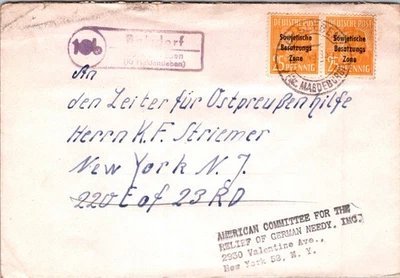 10b
(Kr Haldensleben)
DEUTSCHE POST
Sowjetische
Besatzungs
Zone
25 PFENNIG
DEUTSCHE POST
Sowjetische
Besatzungs
Zone
25 PFENNIG
MAGDEBURG
An
den Leiter für Ostpreußenhilfe
Herrn K.F. Striemer
New York N. J.
220 E of 23 RD
AMERICAN COMMITTEE FOR THE
RELIEF OF GERMAN NEEDY, INC.
2350 Valentine Ave.,
New York 58, N. Y.